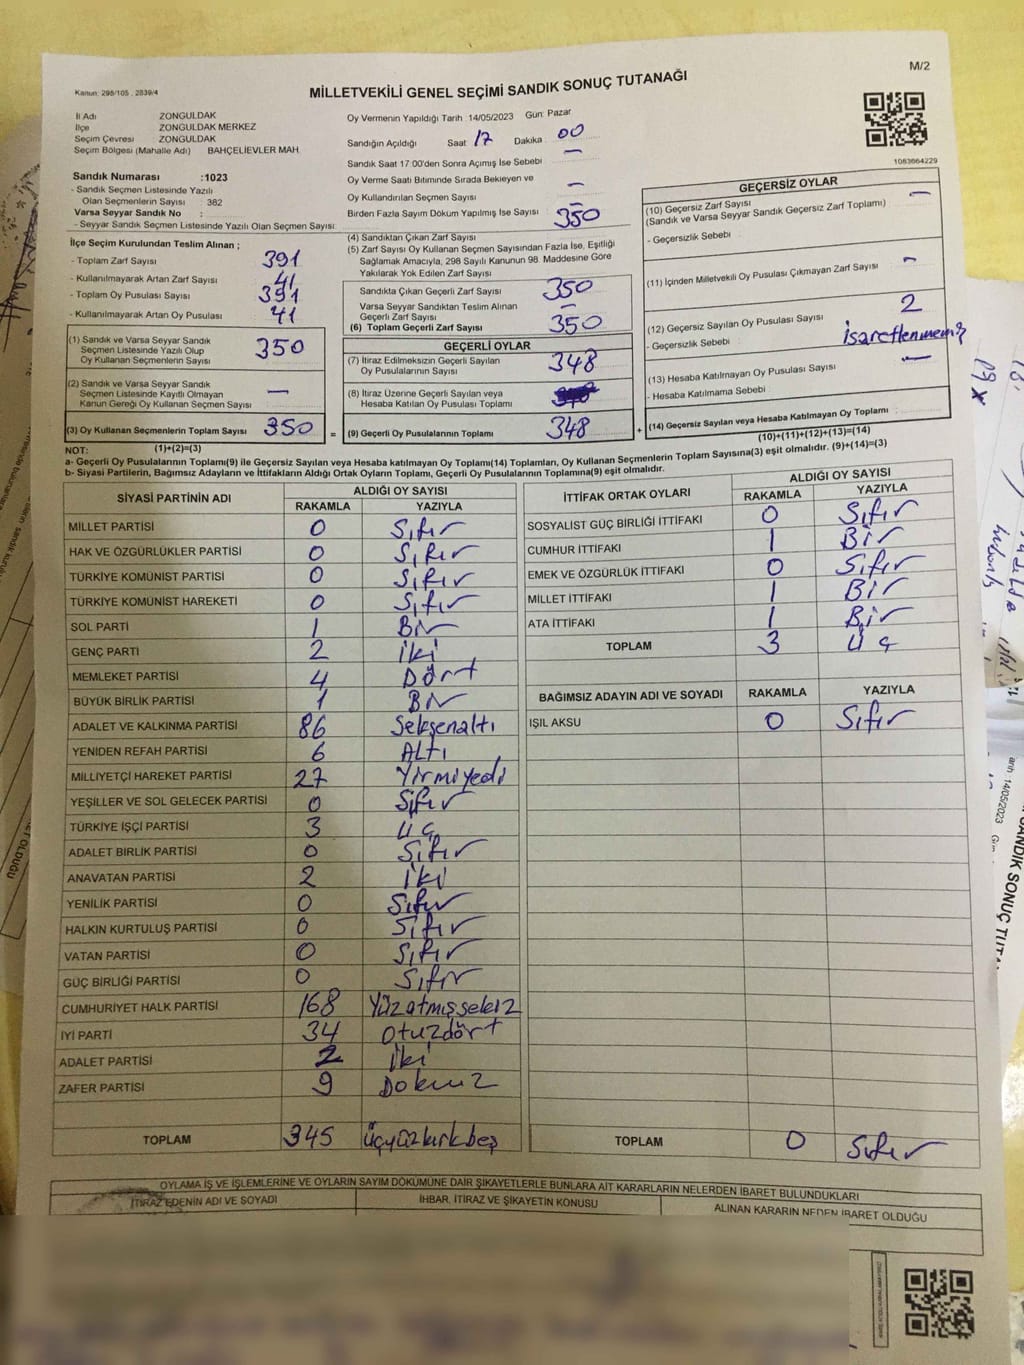 M/2
Kanun: 298/105 , 2839/4
MİLLETVEKİLİ GENEL SEÇİMİ SANDIK SONUÇ TUTANAĞI
İl Adı ZONGULDAK
İlçe ZONGULDAK MERKEZ
Seçim Çevresi ZONGULDAK
Seçim Bölgesi (Mahalle Adı) BAHÇELİEVLER MAH.
Sandık Numarası :1023
- Sandık Seçmen Listesinde Yazılı
Olan Seçmenlerin Sayısı : 382
Varsa Seyyar Sandık No :
- Seyyar Sandık Seçmen Listesinde Yazılı Olan Seçmen Sayısı:
Oy Vermenin Yapıldığı Tarih :14/05/2023 Gün: Pazar
Sandığın Açıldığı Saat 17 Dakika 00
Sandık Saat 17:00'den Sonra Açımış İse Sebebi —
Oy Verme Saati Bitiminde Sırada Bekleyen ve
Oy Kullandırılan Seçmen Sayısı —
Birden Fazla Sayım Döküm Yapılmış İse Sayısı
1083664229
İlçe Seçim Kurulundan Teslim Alınan ;
- Toplam Zarf Sayısı 391
- Kullanılmayarak Artan Zarf Sayısı 41
- Toplam Oy Pusulası Sayısı 391
- Kullanılmayarak Artan Oy Pusulası 41
(1) Sandık ve Varsa Seyyar Sandık
Seçmen Listesinde Yazılı Olup
Oy Kullanan Seçmenlerin Sayısı 350
(2) Sandık ve Varsa Seyyar Sandık
Seçmen Listesinde Kayıtlı Olmayan
Kanun Gereği Oy Kullanan Seçmen Sayısı —
(3) Oy Kullanan Seçmenlerin Toplam Sayısı 350 =
(4) Sandıktan Çıkan Zarf Sayısı 350
(5) Zarf Sayısı Oy Kullanan Seçmen Sayısından Fazla İse, Eşitliği
Sağlamak Amacıyla, 298 Sayılı Kanunun 98. Maddesine Göre
Yakılarak Yok Edilen Zarf Sayısı
Sandıkta Çıkan Geçerli Zarf Sayısı 350
Varsa Seyyar Sandıktan Teslim Alınan
Geçerli Zarf Sayısı —
(6) Toplam Geçerli Zarf Sayısı 350
GEÇERLİ OYLAR
(7) İtiraz Edilmeksizin Geçerli Sayılan
Oy Pusulalarının Sayısı 348
(8) İtiraz Üzerine Geçerli Sayılan veya
Hesaba Katılan Oy Pusulası Toplamı
(9) Geçerli Oy Pusulalarının Toplamı 348 +
GEÇERSİZ OYLAR
(10) Geçersiz Zarf Sayısı —
(Sandık ve Varsa Seyyar Sandık Geçersiz Zarf Toplamı)
- Geçersizlik Sebebi :
(11) İçinden Milletvekili Oy Pusulası Çıkmayan Zarf Sayısı —
(12) Geçersiz Sayılan Oy Pusulası Sayısı 2
- Geçersizlik Sebebi : İsaretlenmemiş
(13) Hesaba Katılmayan Oy Pusulası Sayısı —
- Hesaba Katılmama Sebebi :
(14) Geçersiz Sayılan veya Hesaba Katılmayan Oy Toplamı :
NOT: (1)+(2)=(3) (10)+(11)+(12)+(13)=(14)
a- Geçerli Oy Pusulalarının Toplamı(9) ile Geçersiz Sayılan veya Hesaba katılmayan Oy Toplamı(14) Toplamları, Oy Kullanan Seçmenlerin Toplam Sayısına(3) eşit olmalıdır. (9)+(14)=(3)
b- Siyasi Partilerin, Bağımsız Adayların ve İttifakların Aldığı Ortak Oyların Toplamı, Geçerli Oy Pusulalarının Toplamına(9) eşit olmalıdır.
SİYASİ PARTİNİN ADI ALDIĞI OY SAYISI
RAKAMLA YAZIYLA
MİLLET PARTİSİ 0 Sıfır
HAK VE ÖZGÜRLÜKLER PARTİSİ 0 Sıfır
TÜRKİYE KOMÜNİST PARTİSİ 0 Sıfır
TÜRKİYE KOMÜNİST HAREKETİ 0 Sıfır
SOL PARTİ 1 Bir
GENÇ PARTİ 2 İki
MEMLEKET PARTİSİ 4 Dört
BÜYÜK BİRLİK PARTİSİ 1 Bir
ADALET VE KALKINMA PARTİSİ 86 Seksenaltı
YENİDEN REFAH PARTİSİ 6 Altı
MİLLİYETÇİ HAREKET PARTİSİ 27 Yirmiyedi
YEŞİLLER VE SOL GELECEK PARTİSİ 0 Sıfır
TÜRKİYE İŞÇİ PARTİSİ 3 üç
ADALET BİRLİK PARTİSİ 0 Sıfır
ANAVATAN PARTİSİ 2 İki
YENİLİK PARTİSİ 0 Sıfır
HALKIN KURTULUŞ PARTİSİ 0 Sıfır
VATAN PARTİSİ 0 Sıfır
GÜÇ BİRLİĞİ PARTİSİ 0 Sıfır
CUMHURİYET HALK PARTİSİ 168 Yüzatmışsekiz
İYİ PARTİ 34 Otuzdört
ADALET PARTİSİ 2 İki
ZAFER PARTİSİ 9 Dokuz
TOPLAM 345 üçyüzkırkbeş
İTTİFAK ORTAK OYLARI ALDIĞI OY SAYISI
RAKAMLA YAZIYLA
SOSYALİST GÜÇ BİRLİĞİ İTTİFAKI 0 Sıfır
CUMHUR İTTİFAKI 1 Bir
EMEK VE ÖZGÜRLÜK İTTİFAKI 0 Sıfır
MİLLET İTTİFAKI 1 Bir
ATA İTTİFAKI 1 Bir
TOPLAM 3 üç
BAĞIMSIZ ADAYIN ADI VE SOYADI RAKAMLA YAZIYLA
IŞIL AKSU 0 Sıfır
TOPLAM 0 Sıfır
OYLAMA İŞ VE İŞLEMLERİNE VE OYLARIN SAYIM DÖKÜMÜNE DAİR ŞİKAYETLERLE BUNLARA AİT KARARLARIN NELERDEN İBARET BULUNDUKLARI
İTİRAZ EDENİN ADI VE SOYADI İHBAR, İTİRAZ VE ŞİKAYETİN KONUSU ALINAN KARARIN NEDEN İBARET OLDUĞU